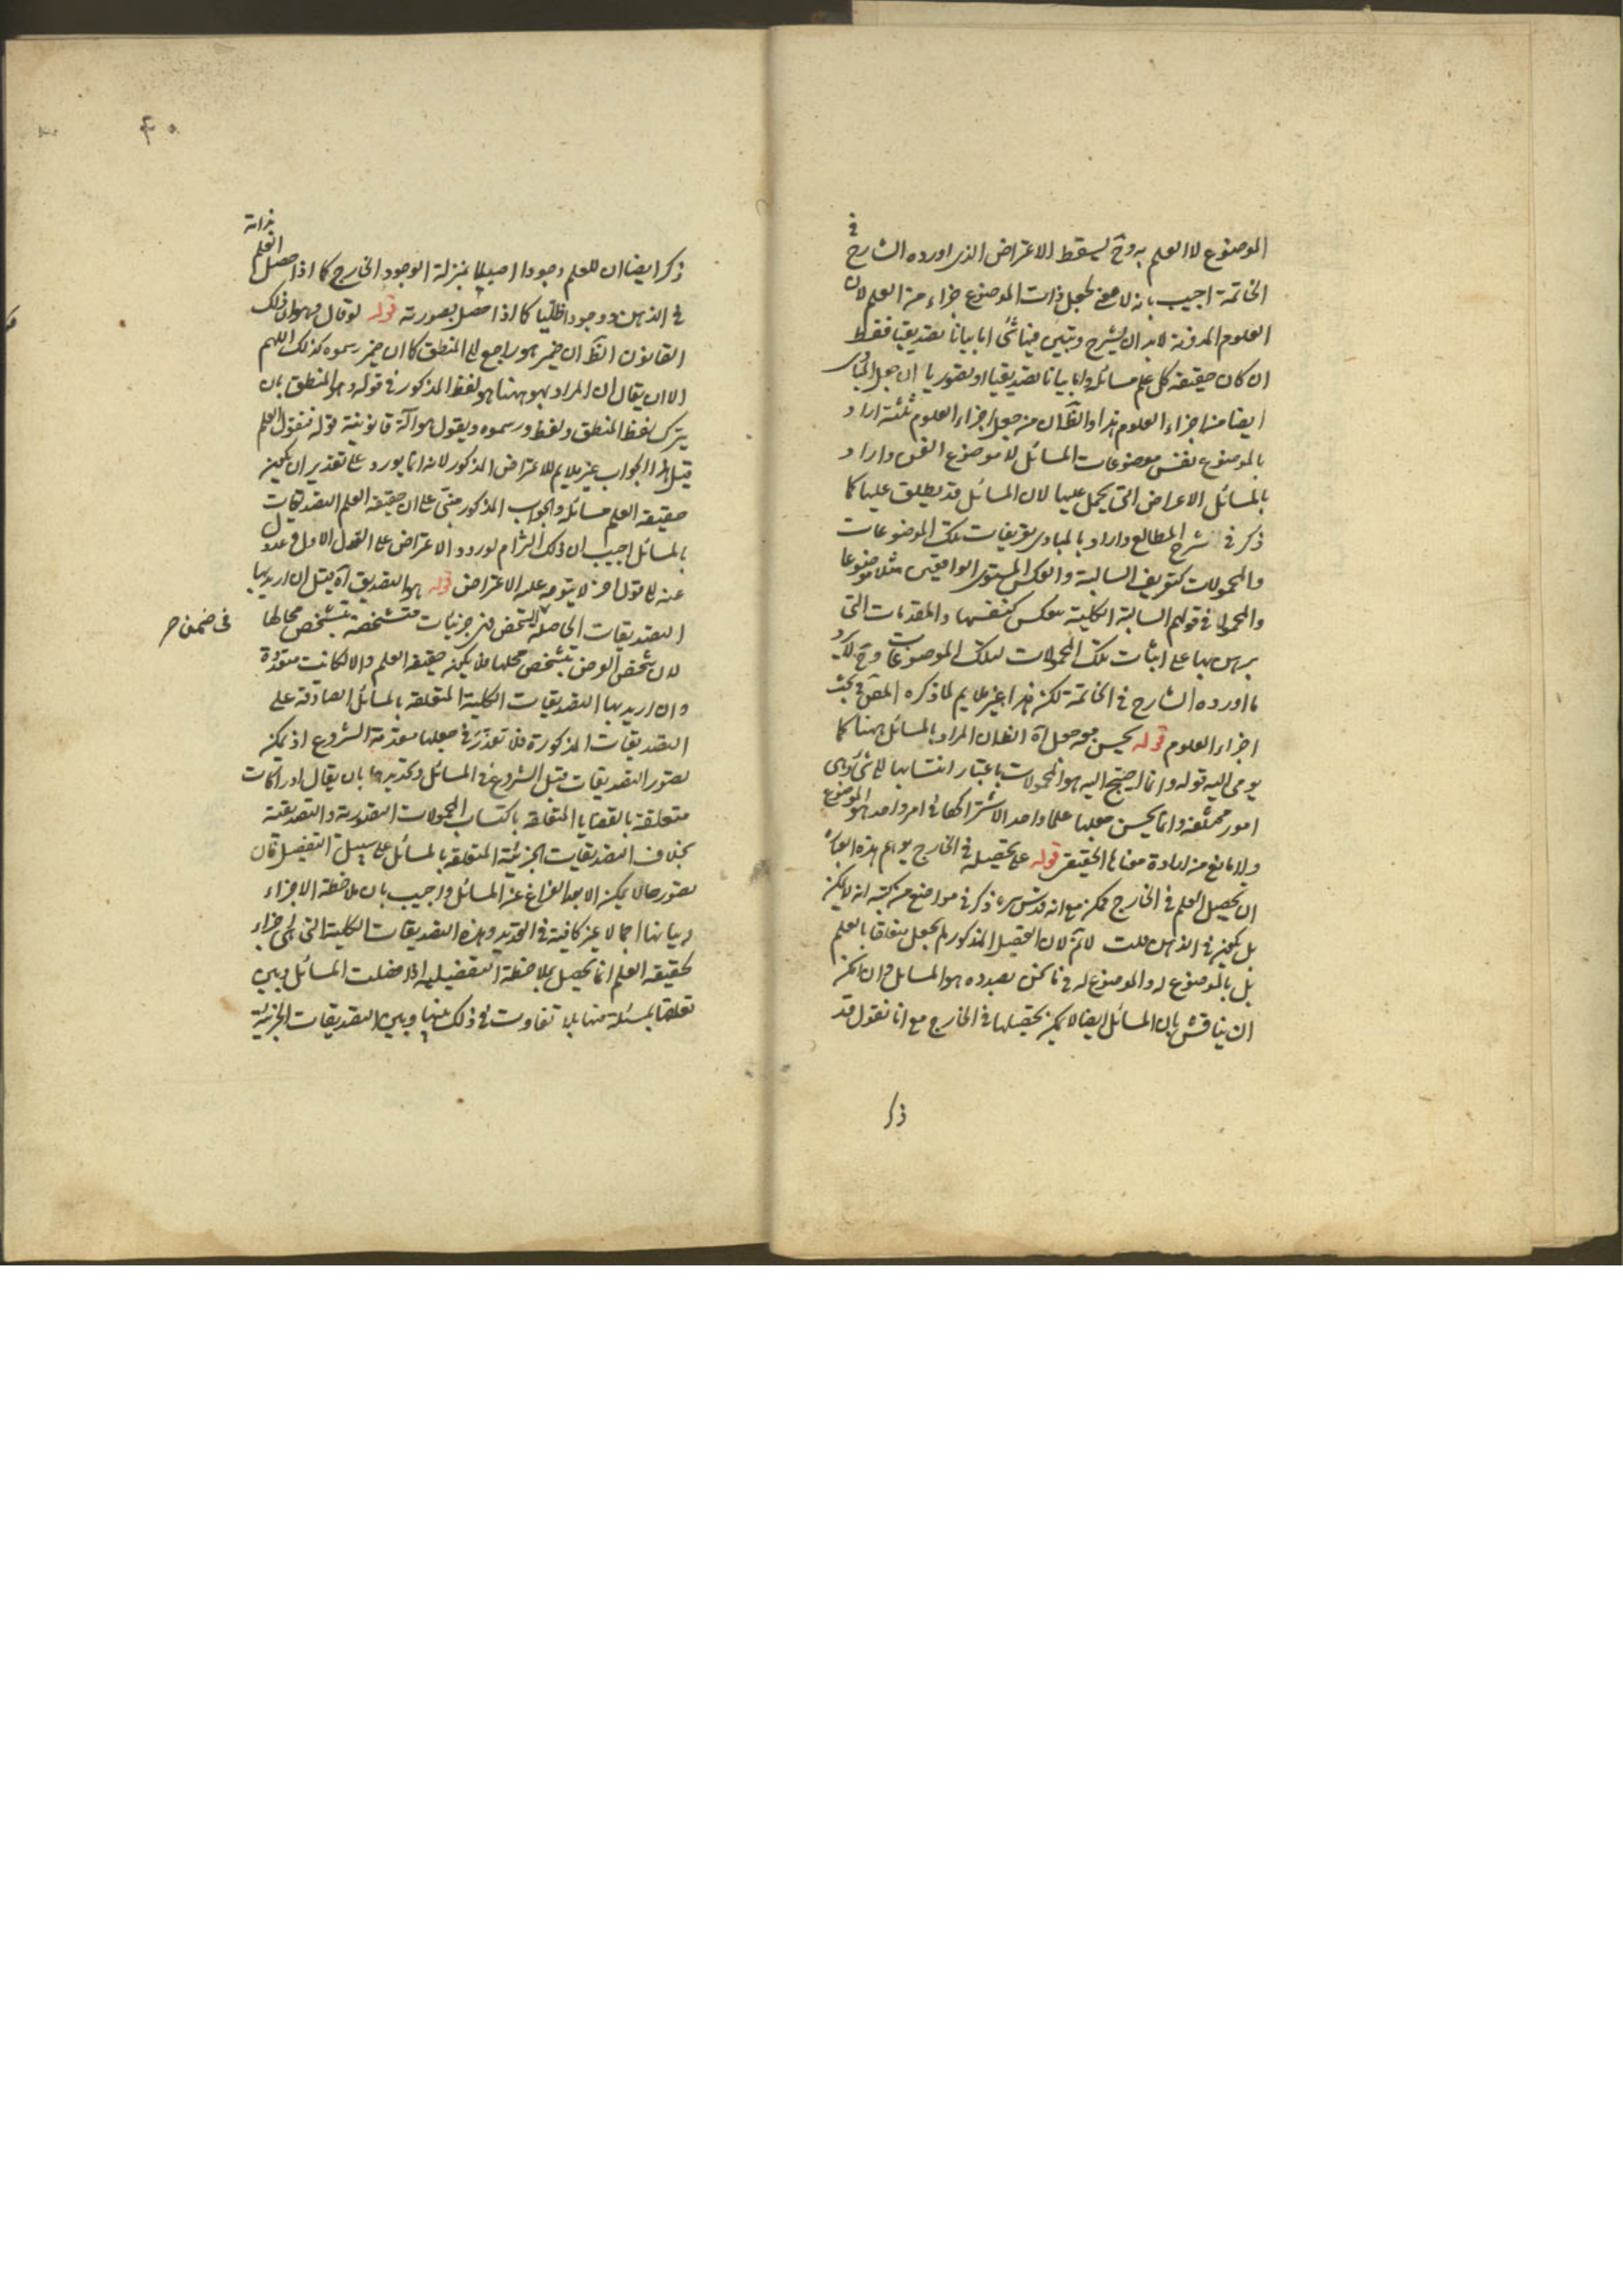 الموضوع لا العلم به وح ليسقط الاعتراض الذى اورده الشارح فى
الخاتمة اجيب بانه لا معنى لجعل ذات الموضوع جزاء من العلم لان
العلوم المدونة لابد ان يشرح ويتبين فيها شئ اما بيانا تصديقيا فقط
ان كان حقيقة كل علم مسائله واما بيانا تصديقيا او تصوريا ان جعل المبادى
ايضا من اجزاء العلوم هذا والظ ان من جعل اجزاء العلوم ثلثة اراد
بالموضوع نفس موضوعات المسائل لا موضوع الفن واراد
بالمسائل الاعراض التى يحمل عليها لان المسائل قد يطلق عليها كما
ذكر فى شرح المطالع واراد بالمبادى تعريفات تلك الموضوعات
والمحمولات كتعريف السالبة والعكس المستوى الواقعين مثلا موضوعا
والمحمول فى قولهم السالبة الكلية تنعكس كنفسها والمقدمات التى
برهن بها على اثبات تلك المحمولات لتلك الموضوعات وح لا يرد
ما اورده الشارح فى الخاتمة لكن هذا غير ملايم لما ذكره المص فى بحث
اجزاء العلوم قوله يحسن معه جعل آه الظ ان المراد بالمسائل ههنا كما
يومى اليه قوله وانما احتيج اليه هو المحمولات باعتبار انتسابها الى شئ وهى
امور مختلفة وانما يحسن جعلها علما واحدا لاشتراكها فى امر واحد هو الموضوع
ولا مانع من ارادة معناها الحقيقى قوله على تحصيله فى الخارج يوهم هذه العبارة
ان تحصيل العلم فى الخارج ممكن مع انه قدس سره ذكر فى مواضع من كتبه انه لا يمكن
بل يمكن فى الذهن قلت لا ثم لان التحصيل المذكور لم يجعل متعلقا بالعلم
بل بالموضوع له والموضوع له فى ما نحن بصدده هو المسائل وان امكن
ان يناقش بان المسائل ايضا لا يمكن تحصيلها فى الخارج مع انا نقول قد
ذكر
ذكر ايضا ان للعلم وجودا اصيليا بمنزلة الوجود الخارجى كما اذا حصل العلم بذاته
فى الذهن ووجودا ظليا كما اذا حصل بصورته قوله لو قال وهو ان ذلك
القانون الظ ان ضمير هو راجع الى المنطق كما ان ضمير رسموه كذلك اللهم
الا ان يقال ان المراد بهو ههنا هو لفظ المذكور فى قوله وهو المنطق بان
يترك لفظ المنطق ولفظ ورسموه ويقول هو آلة قانونية قوله فنقول العلم
قيل هذا الجواب غير ملايم للاعتراض المذكور لانه انما يورد على تقدير ان يكون
حقيقة العلم مسائله والجواب المذكور مبنى على ان حقيقة العلم التصديقات
بالمسائل اجيب ان ذلك التزام لورود الاعتراض على القول الاول وعدول
عنه الى قول اخر لا يتوجه عليه الاعتراض قوله هو التصديق آه قيل ان اريد بها
التصديقات الحاصلة لشخص فهى جزئيات متشخصة بتشخص محالها
فى ضمن
لان تشخص العرض بتشخص محلها فلا يكون حقيقة العلم والا لكانت متعددة
وان اريد بها التصديقات الكلية المتعلقة بالمسائل الصادقة على
التصديقات المذكورة فلا تعذر فى جعلها مقدمة الشروع اذ يمكن
تصور التصديقات قبل الشروع فى المسائل وتحديدها بان يقال ادراكات
متعلقة بالقضايا المتعلقة باكتساب المجهولات التصورية والتصديقية
بخلاف التصديقات الجزئية المتعلقة بالمسائل على سبيل التفصيل فان
تصورها لا يمكن الا بعد الفراغ عن المسائل واجيب بان ملاحظة الاجزاء
وبيانها اجمالا غير كافية فى التحديد وهذه التصديقات الكلية التى هى اجزاء
لحقيقة العلم انما تحصل بملاحظة التفصيلية اذا فصلت المسائل وبين
تعلقها بمسئلة منها بلا تفاوت فى ذلك بينها وبين التصديقات الجزئية